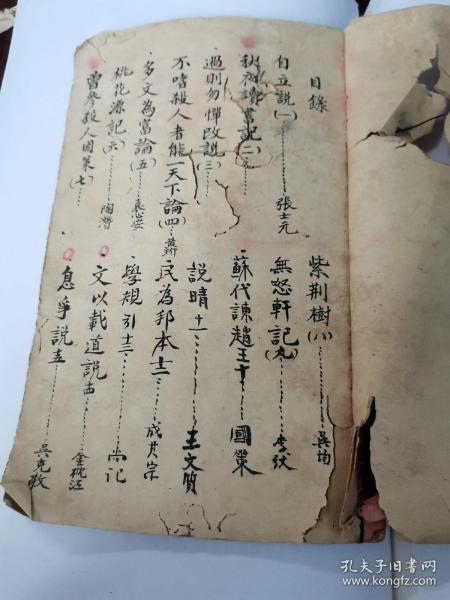 目錄
自立說(一)……張士元
秋夜讀書記(二)
過則勿憚改說(三)
不嗜殺人者能一天下論(四)
多文為富論(五)……袁忠安
桃花源記(六)……陶潛
曾參殺人國策(七)
紫荊樹(八)……吳均
無怒軒記(九)……李紱
蘇代諫趙王十……國策
說晴十一……王文質
民為邦本十二……成其宗
學規引十三……尚記
文以載道說十四……金桃江
息爭說十五……吳克敬
孔夫子旧书网
www.kongfz.com